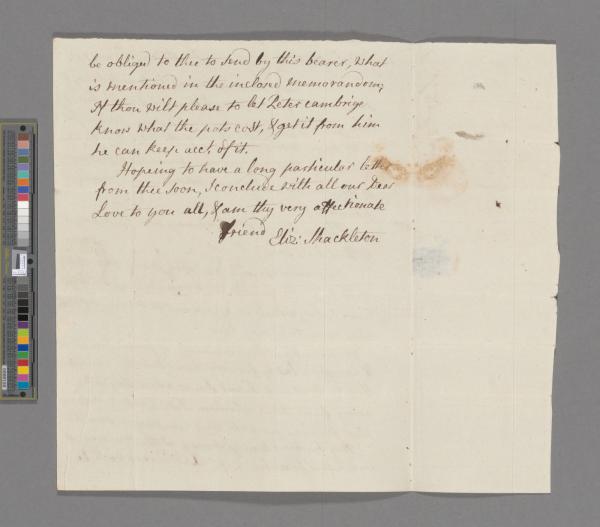 be obliged to thee to send by this bearer, what
is mentioned in the inclosed memorandom;
& thou wilt please to let Peter cambrige
know what the pots cost, & get it from him
he can keep acct. of it.
Hoping to have a long particular letter
from thee soon, I conclude with all our Dear
Love to you all, & am thy very affectionate
friend Eliz: Shackleton